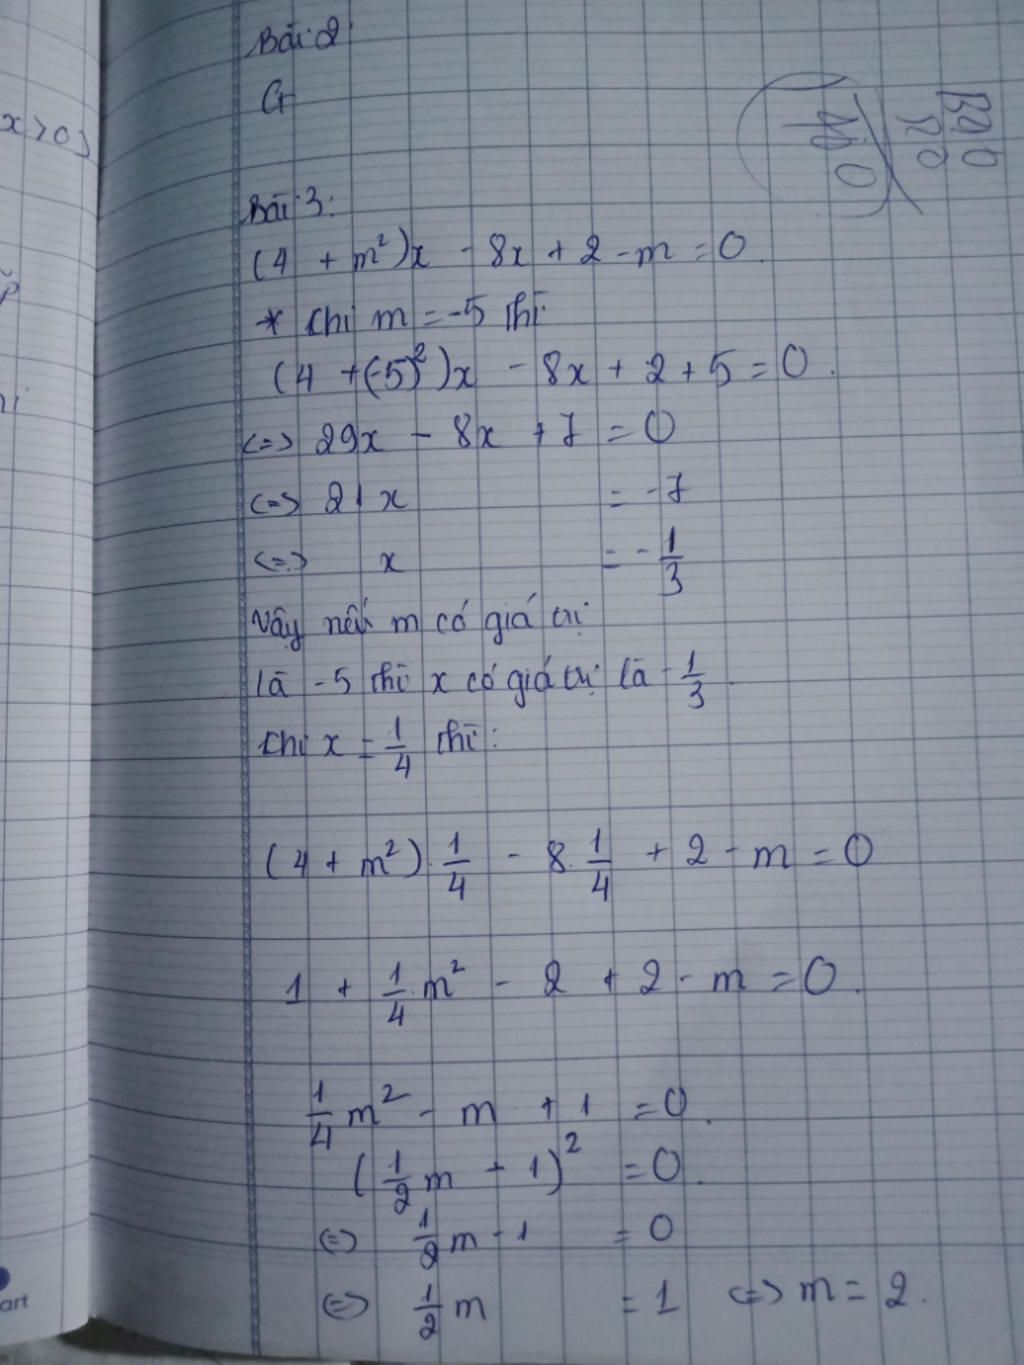 Bài 2
G
x > 0)
Bài 3:
(4 + m²)x - 8x + 2 - m = 0.
* Khi m = -5 thì
(4 + (-5)²)x - 8x + 2 + 5 = 0.
<=> 29x - 8x + 7 = 0
<=> 21x = -7
<=> x = -1/3
Vậy nếu m có giá trị
là -5 thì x có giá trị là -1/3.
Khi x = 1/4 thì:
(4 + m²).1/4 - 8.1/4 + 2 - m = 0
1 + 1/4.m² - 2 + 2 - m = 0.
1/4 m² - m + 1 = 0.
(1/2 m - 1)² = 0.
<=> 1/2 m - 1 = 0
<=> 1/2 m = 1 <=> m = 2.
art